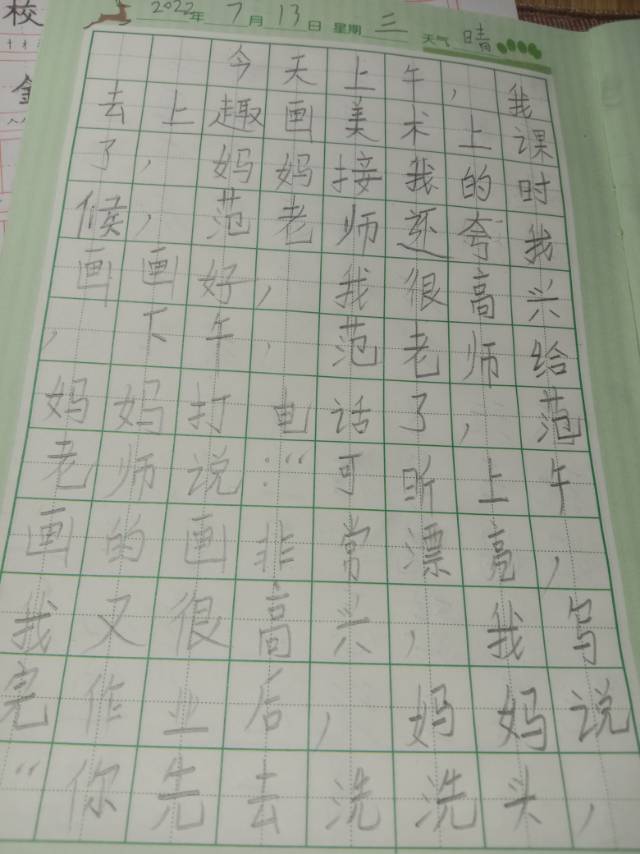 2022年7月13日 星期三 天气晴
今天上午，我
去上趣画美术上课
了，妈妈接我的时
候，范老师还夸我
画画好，我很高兴
，下午，范老师给
妈妈打电话了，范
老师说：“可昕上午
画的画非常漂亮，
我又很高兴，我写
完作业后，妈妈说
“你先去洗洗头，
校